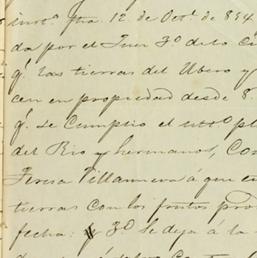 fha. 12 de Octe. de 854
da por el Juez 3º de lo Ci
q. las tierras del Ubero y
cen en propiedad desde 8
q. se cumplio el ultº pl
del Rio y hermanos, Con
Teresa Villanueva á que en
tierras con los frutos pro
fecha: y 3º se deja á la